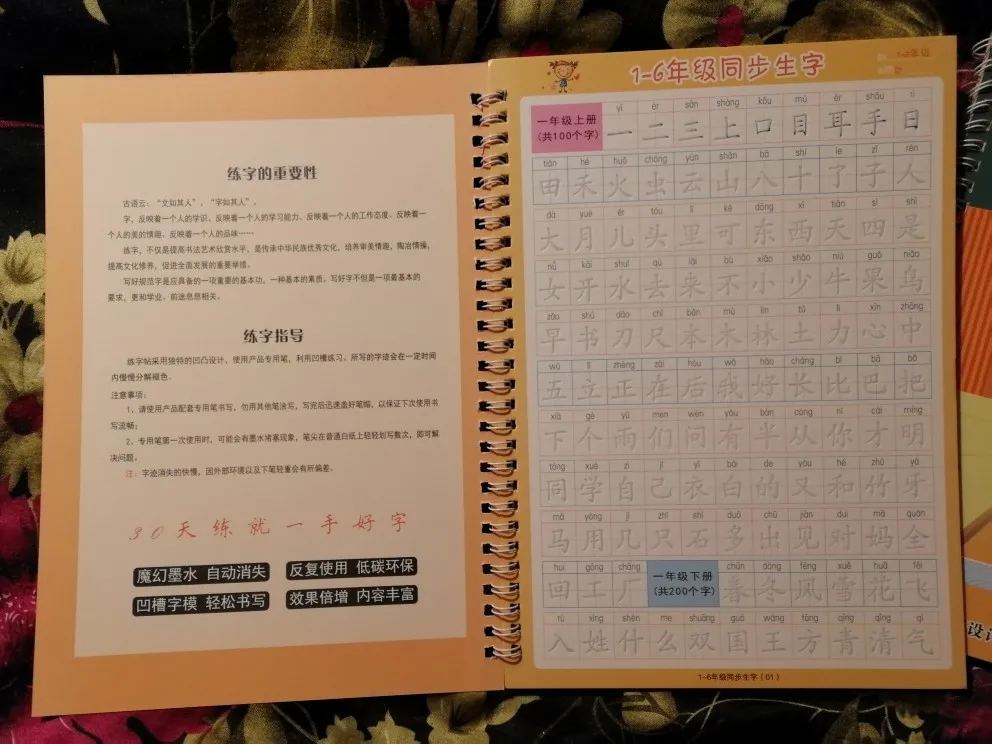 练字的重要性
古语云：“文如其人”，“字如其人”。
字，反映着一个人的学识、反映着一个人的学习能力、反映着一个人的工作态度、反映着一
个人的美的情趣、反映着一个人的品味……
练字，不仅是提高书法艺术欣赏水平，是传承中华民族优秀文化，培养审美情趣，陶冶情操，
提高文化修养，促进全面发展的重要举措。
写好规范字是应具备的一项重要的基本功，一种基本的素质，写好字不但是一项最基本的
要求，更和学业、前途息息相关。
练字指导
练字帖采用独特的凹凸设计，使用产品专用笔，利用凹槽练习，所写的字迹会在一定时间
内慢慢分解褪色。
注意事项：
1、请使用产品配套专用笔书写，勿用其他笔涂写，写完后迅速盖好笔帽，以保证下次使用书
写流畅；
2、专用笔第一次使用时，可能会有墨水堵塞现象，笔尖在普通白纸上轻轻划写数次，即可解
决问题。
注：字迹消失的快慢，因外部环境以及下笔轻重会有所偏差。
30天练就一手好字
魔幻墨水 自动消失 反复使用 低碳环保
凹槽字模 轻松书写 效果倍增 内容丰富
1-6年级同步生字
yī èr sān shàng kǒu mù ěr shǒu rì
一年级上册
(共100个字)
一 二 三 上 口 目 耳 手 日
tián hé huǒ chóng yún shān bā shí le zǐ rén
田 禾 火 虫 云 山 八 十 了 子 人
dà yuè ér tóu lǐ kě dōng xī tiān sì shì
大 月 儿 头 里 可 东 西 天 四 是
nǚ kāi shuǐ qù lái bù xiǎo shǎo niú guǒ niǎo
女 开 水 去 来 不 小 少 牛 果 鸟
zǎo shū dāo chǐ běn mù lín tǔ lì xīn zhōng
早 书 刀 尺 本 木 林 土 力 心 中
wǔ lì zhèng zài hòu wǒ hǎo cháng bǐ bā bǎ
五 立 正 在 后 我 好 长 比 巴 把
xià gè yǔ men wèn yǒu bàn cóng nǐ cái míng
下 个 雨 们 问 有 半 从 你 才 明
tóng xué zì jǐ yī bái de yòu hé zhú yá
同 学 自 己 衣 白 的 又 和 竹 牙
mǎ yòng jǐ zhī shí duō chū jiàn duì mā quán
马 用 几 只 石 多 出 见 对 妈 全
huí gōng chǎng chūn dōng fēng xuě huā fēi
回 工 厂
一年级下册
(共200个字)
春 冬 风 雪 花 飞
rù xìng shén me shuāng guó wáng fāng qīng qīng qì
入 姓 什 么 双 国 王 方 青 清 气
1-6年级同步生字（01）